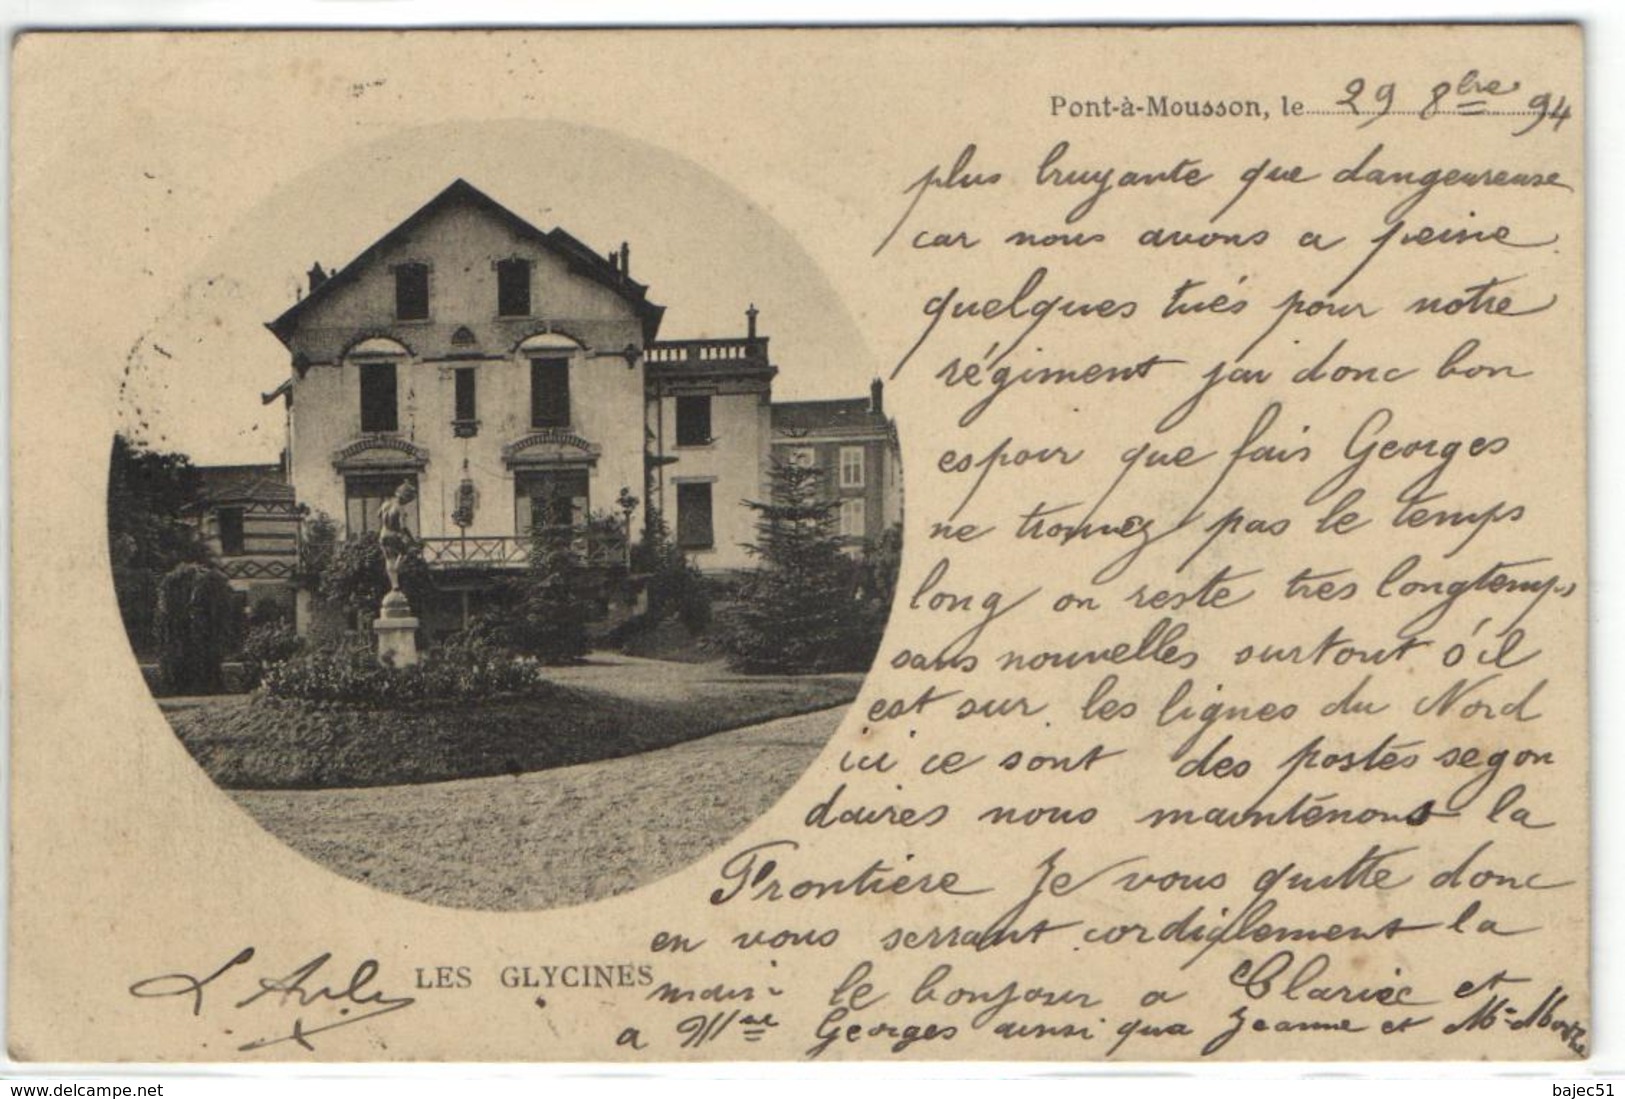 Pont-à-Mousson, le 29 8bre 94
plus bruyante que dangeureuse
car nous avons a peine
quelques tués pour notre
régiment jai donc bon
espoir que fais Georges
ne trouvez pas le temps
long on reste tres longtemps
sans nouvelles surtout s'il
est sur les lignes du Nord
ici ce sont des postes segon
daires nous maintenons la
Frontiere Je vous quitte donc
en vous serrant cordialement la
main le bonjour a Clarice et
a Mme Georges ainsi qua Jeanne et
LES GLYCINES
bajec51
www.delcampe.net